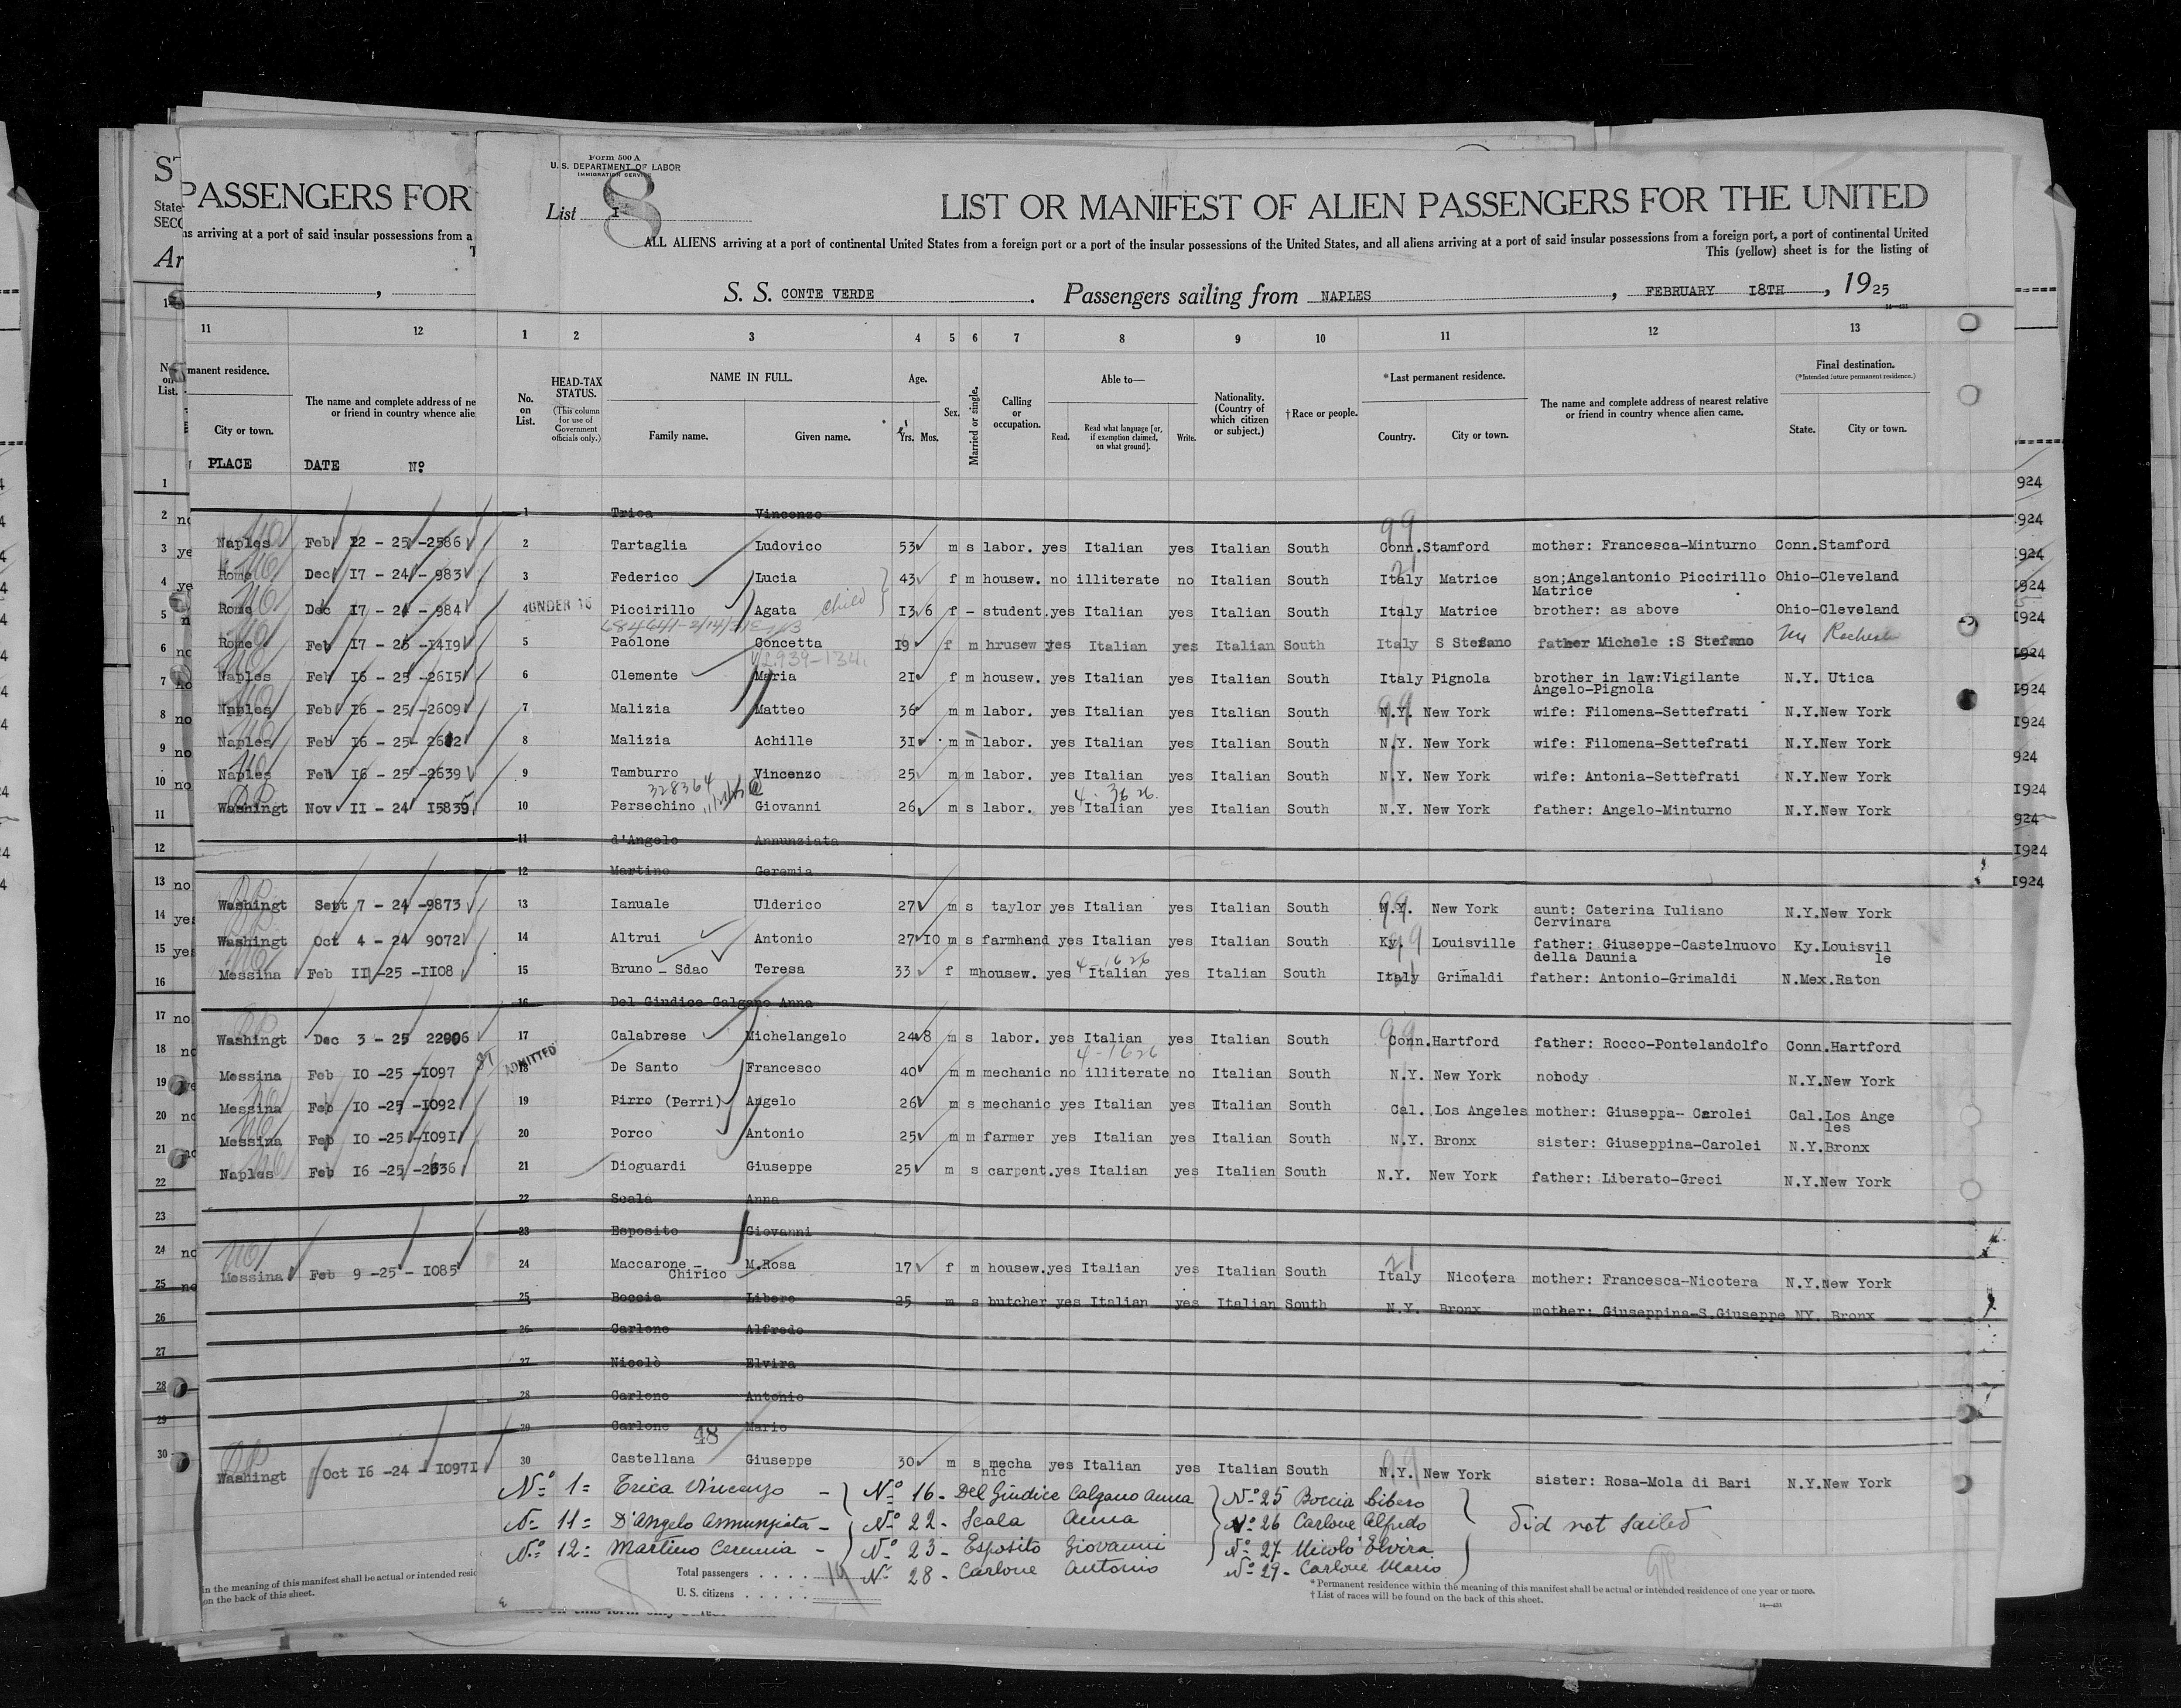 Form 500 A
U. S. DEPARTMENT OF LABOR
IMMIGRATION SERVICE
List I
8
LIST OR MANIFEST OF ALIEN PASSENGERS FOR THE UNITED
ALL ALIENS arriving at a port of continental United States from a foreign port or a port of the insular possessions of the United States, and all aliens arriving at a port of said insular possessions from a foreign port, a port of continental United
This (yellow) sheet is for the listing of
S. S. CONTE VERDE. Passengers sailing from NAPLES, FEBRUARY 18TH, 1925
PASSENGERS FOR
ns arriving at a port of said insular possessions from a
11 12
manent residence.
City or town.
The name and complete address of ne
or friend in country whence alie
PLACE DATE Nº
1 2 3 4 5 6 7 8 9 10 11 12 13
No. on List.
HEAD-TAX STATUS.
(This column for use of Government officials only.)
NAME IN FULL.
Family name. Given name.
Age.
Yrs. Mos.
Sex.
Married or single.
Calling or occupation.
Able to—
Read. Read what language [or, if exemption claimed, on what ground]. Write.
Nationality. (Country of which citizen or subject.)
†Race or people.
*Last permanent residence.
Country. City or town.
The name and complete address of nearest relative or friend in country whence alien came.
Final destination.
(*Intended future permanent residence.)
State. City or town.
1 Trica Vincenzo
Naples Feb 12 - 25 -2586 2 Tartaglia Ludovico 53 m s labor. yes Italian yes Italian South Conn. Stamford mother: Francesca-Minturno Conn.Stamford
Rome Dec 17 - 24 - 983 3 Federico Lucia 43 f m housew. no illiterate no Italian South Italy Matrice son;Angelantonio Piccirillo Matrice Ohio-Cleveland
Rome Dec 17 - 24 - 984 4 UNDER 16 Piccirillo Agata child 13 6 f - student. yes Italian yes Italian South Italy Matrice brother: as above Ohio-Cleveland
Rome Feb 17 - 25 -1419 5 Paolone Concetta 19 f m hrusew yes Italian yes Italian South Italy S Stefano father Michele :S Stefano Rochester
Naples Feb 16 - 25 -2615 6 Clemente Maria 21 f m housew. yes Italian yes Italian South Italy Pignola brother in law:Vigilante Angelo-Pignola N.Y. Utica
Naples Feb 16 - 25 -2609 7 Malizia Matteo 36 m m labor. yes Italian yes Italian South N.Y. New York wife: Filomena-Settefrati N.Y.New York
Naples Feb 16 - 25- 2612 8 Malizia Achille 31 m m labor. yes Italian yes Italian South N.Y. New York wife: Filomena-Settefrati N.Y.New York
Naples Feb 16 - 25 -2639 9 Tamburro Vincenzo 25 m m labor. yes Italian yes Italian South N.Y. New York wife: Antonia-Settefrati N.Y.New York
328364
Washingt Nov 11 - 24 15835 10 Persechino Giovanni 26 m s labor. yes Italian yes Italian South N.Y. New York father: Angelo-Minturno N.Y.New York
11 d'Angelo Annunziata
12 Martino Geremia
Washingt Sept 7 - 24 -9873 13 Ianuale Ulderico 27 m s taylor yes Italian yes Italian South N.Y. New York aunt: Caterina Iuliano Cervinara N.Y.New York
Washingt Oct 4 - 24 9072 14 Altrui Antonio 27 10 m s farmhand yes Italian yes Italian South Ky. Louisville father: Giuseppe-Castelnuovo della Daunia Ky.Louisvil le
Messina Feb 11 -25 -1108 15 Bruno - Sdao Teresa 33 f m housew. yes Italian yes Italian South Italy Grimaldi father: Antonio-Grimaldi N.Mex.Raton
16 Del Giudice Calgano Anna
Washingt Dec 3 - 25 22906 17 Calabrese Michelangelo 24 8 m s labor. yes Italian yes Italian South Conn.Hartford father: Rocco-Pontelandolfo Conn.Hartford
Messina Feb 10 -25 -1097 ADMITTED 18 De Santo Francesco 40 m m mechanic no illiterate no Italian South N.Y. New York nobody N.Y.New York
Messina Feb 10 -25 -1092 19 Pirro (Perri) Angelo 26 m s mechanic yes Italian yes Italian South Cal. Los Angeles mother: Giuseppa- Carolei Cal.Los Ange les
Messina Feb 10 -25 -1091 20 Porco Antonio 25 m m farmer yes Italian yes Italian South N.Y. Bronx sister: Giuseppina-Carolei N.Y.Bronx
Naples Feb 16 -25 -2636 21 Dioguardi Giuseppe 25 m s carpent. yes Italian yes Italian South N.Y. New York father: Liberato-Greci N.Y.New York
22 Scala Anna
23 Esposito Giovanni
Messina Feb 9 -25 - 1085 24 Maccarone - Chirico M.Rosa 17 f m housew. yes Italian yes Italian South Italy Nicotera mother: Francesca-Nicotera N.Y.New York
25 Boccia Libero 25 m s butcher yes Italian yes Italian South N.Y. Bronx mother: Giuseppina-S.Giuseppe NY. Bronx
26 Carlone Alfredo
27 Nicolò Elvira
28 Carlone Antonio
29 Carlone Mario
48
Washingt Oct 16 -24 - 10971 30 Castellana Giuseppe 30 m s mecha nic yes Italian yes Italian South N.Y. New York sister: Rosa-Mola di Bari N.Y.New York
Nº 1= Trica Vincenzo - Nº 16 - Del Giudice Calgano Anna Nº 25 Boccia Libero
Nº 11= D'Angelo Annunziata - Nº 22 - Scala Anna Nº 26 Carlone Alfredo did not sailed
Nº 12= Martino Geremia - Nº 23 - Esposito Giovanni Nº 27 Nicolò Elvira
Nº 28 - Carlone Antonio Nº 29 - Carlone Mario
Total passengers
U. S. citizens
*Permanent residence within the meaning of this manifest shall be actual or intended residence of one year or more.
† List of races will be found on the back of this sheet.
in the meaning of this manifest shall be actual or intended resid
on the back of this sheet.